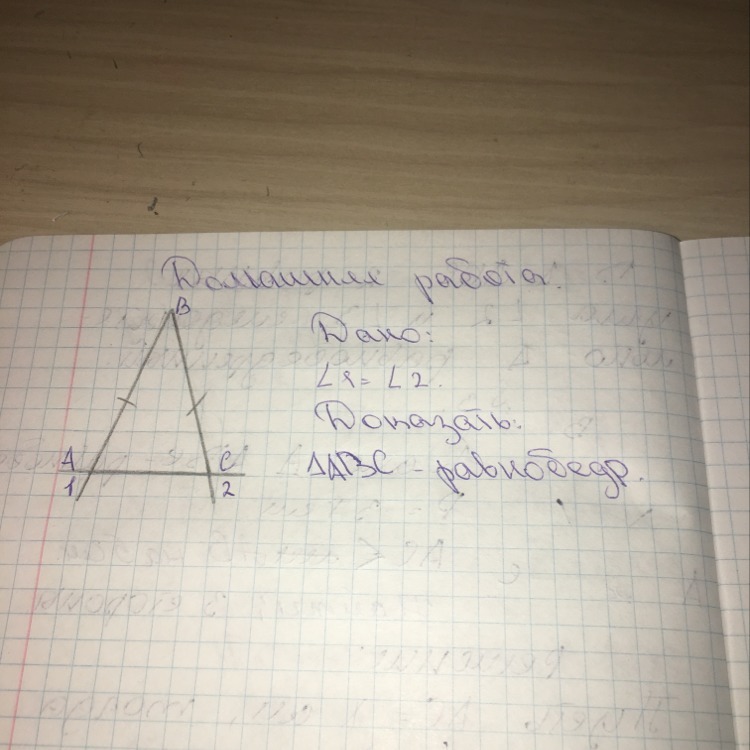 Домашняя работа.
B
Дано:
∠1 = ∠2.
Доказать:
A C
ΔABC - равнобедр.
1 2